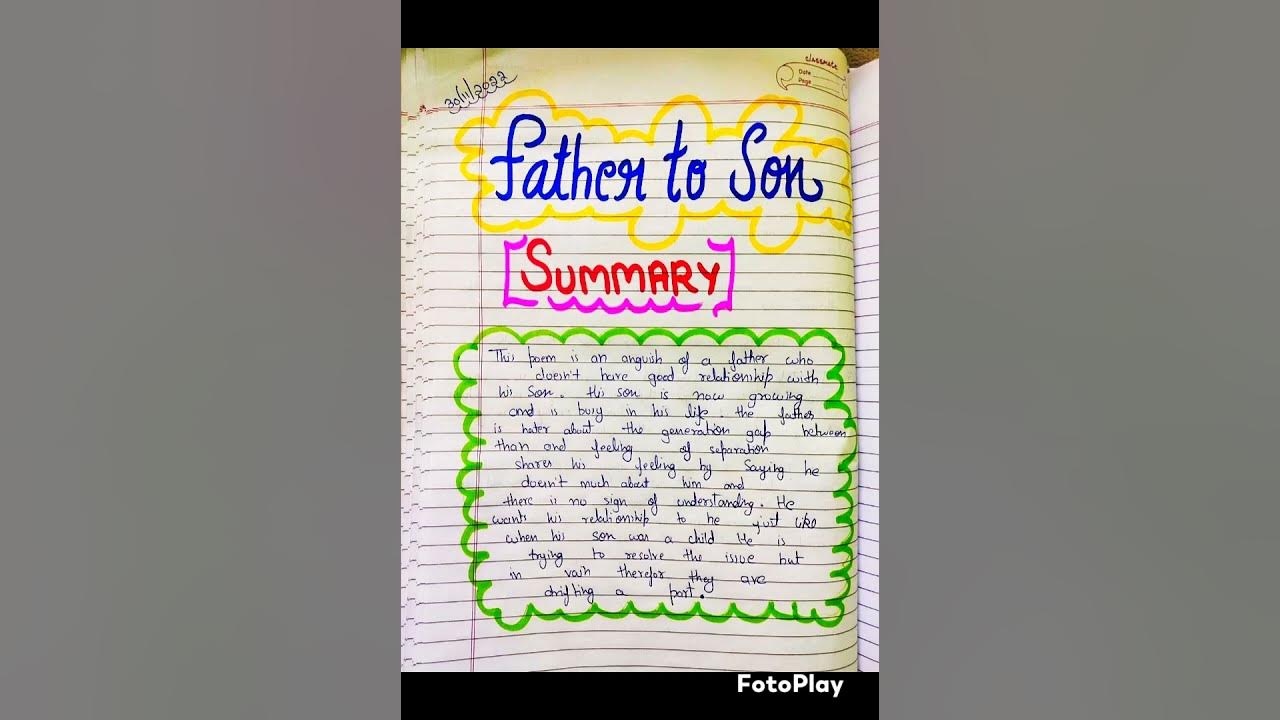 30/11/2022
classmate
Date
Page
Father to Son
SUMMARY
This poem is an anguish of a father who
doesn't have good relationship with
his Son. His son is now growing
and is busy in his life. the father
is hater about the generation gap between
than and feeling of separation
shares his feeling by Saying he
doesn't much about him and
there is no sign of understanding. He
wants his relationship to he just like
when his son was a child He is
trying to resolve the issue but
in vain therefor they are
drifting a part.
FotoPlay